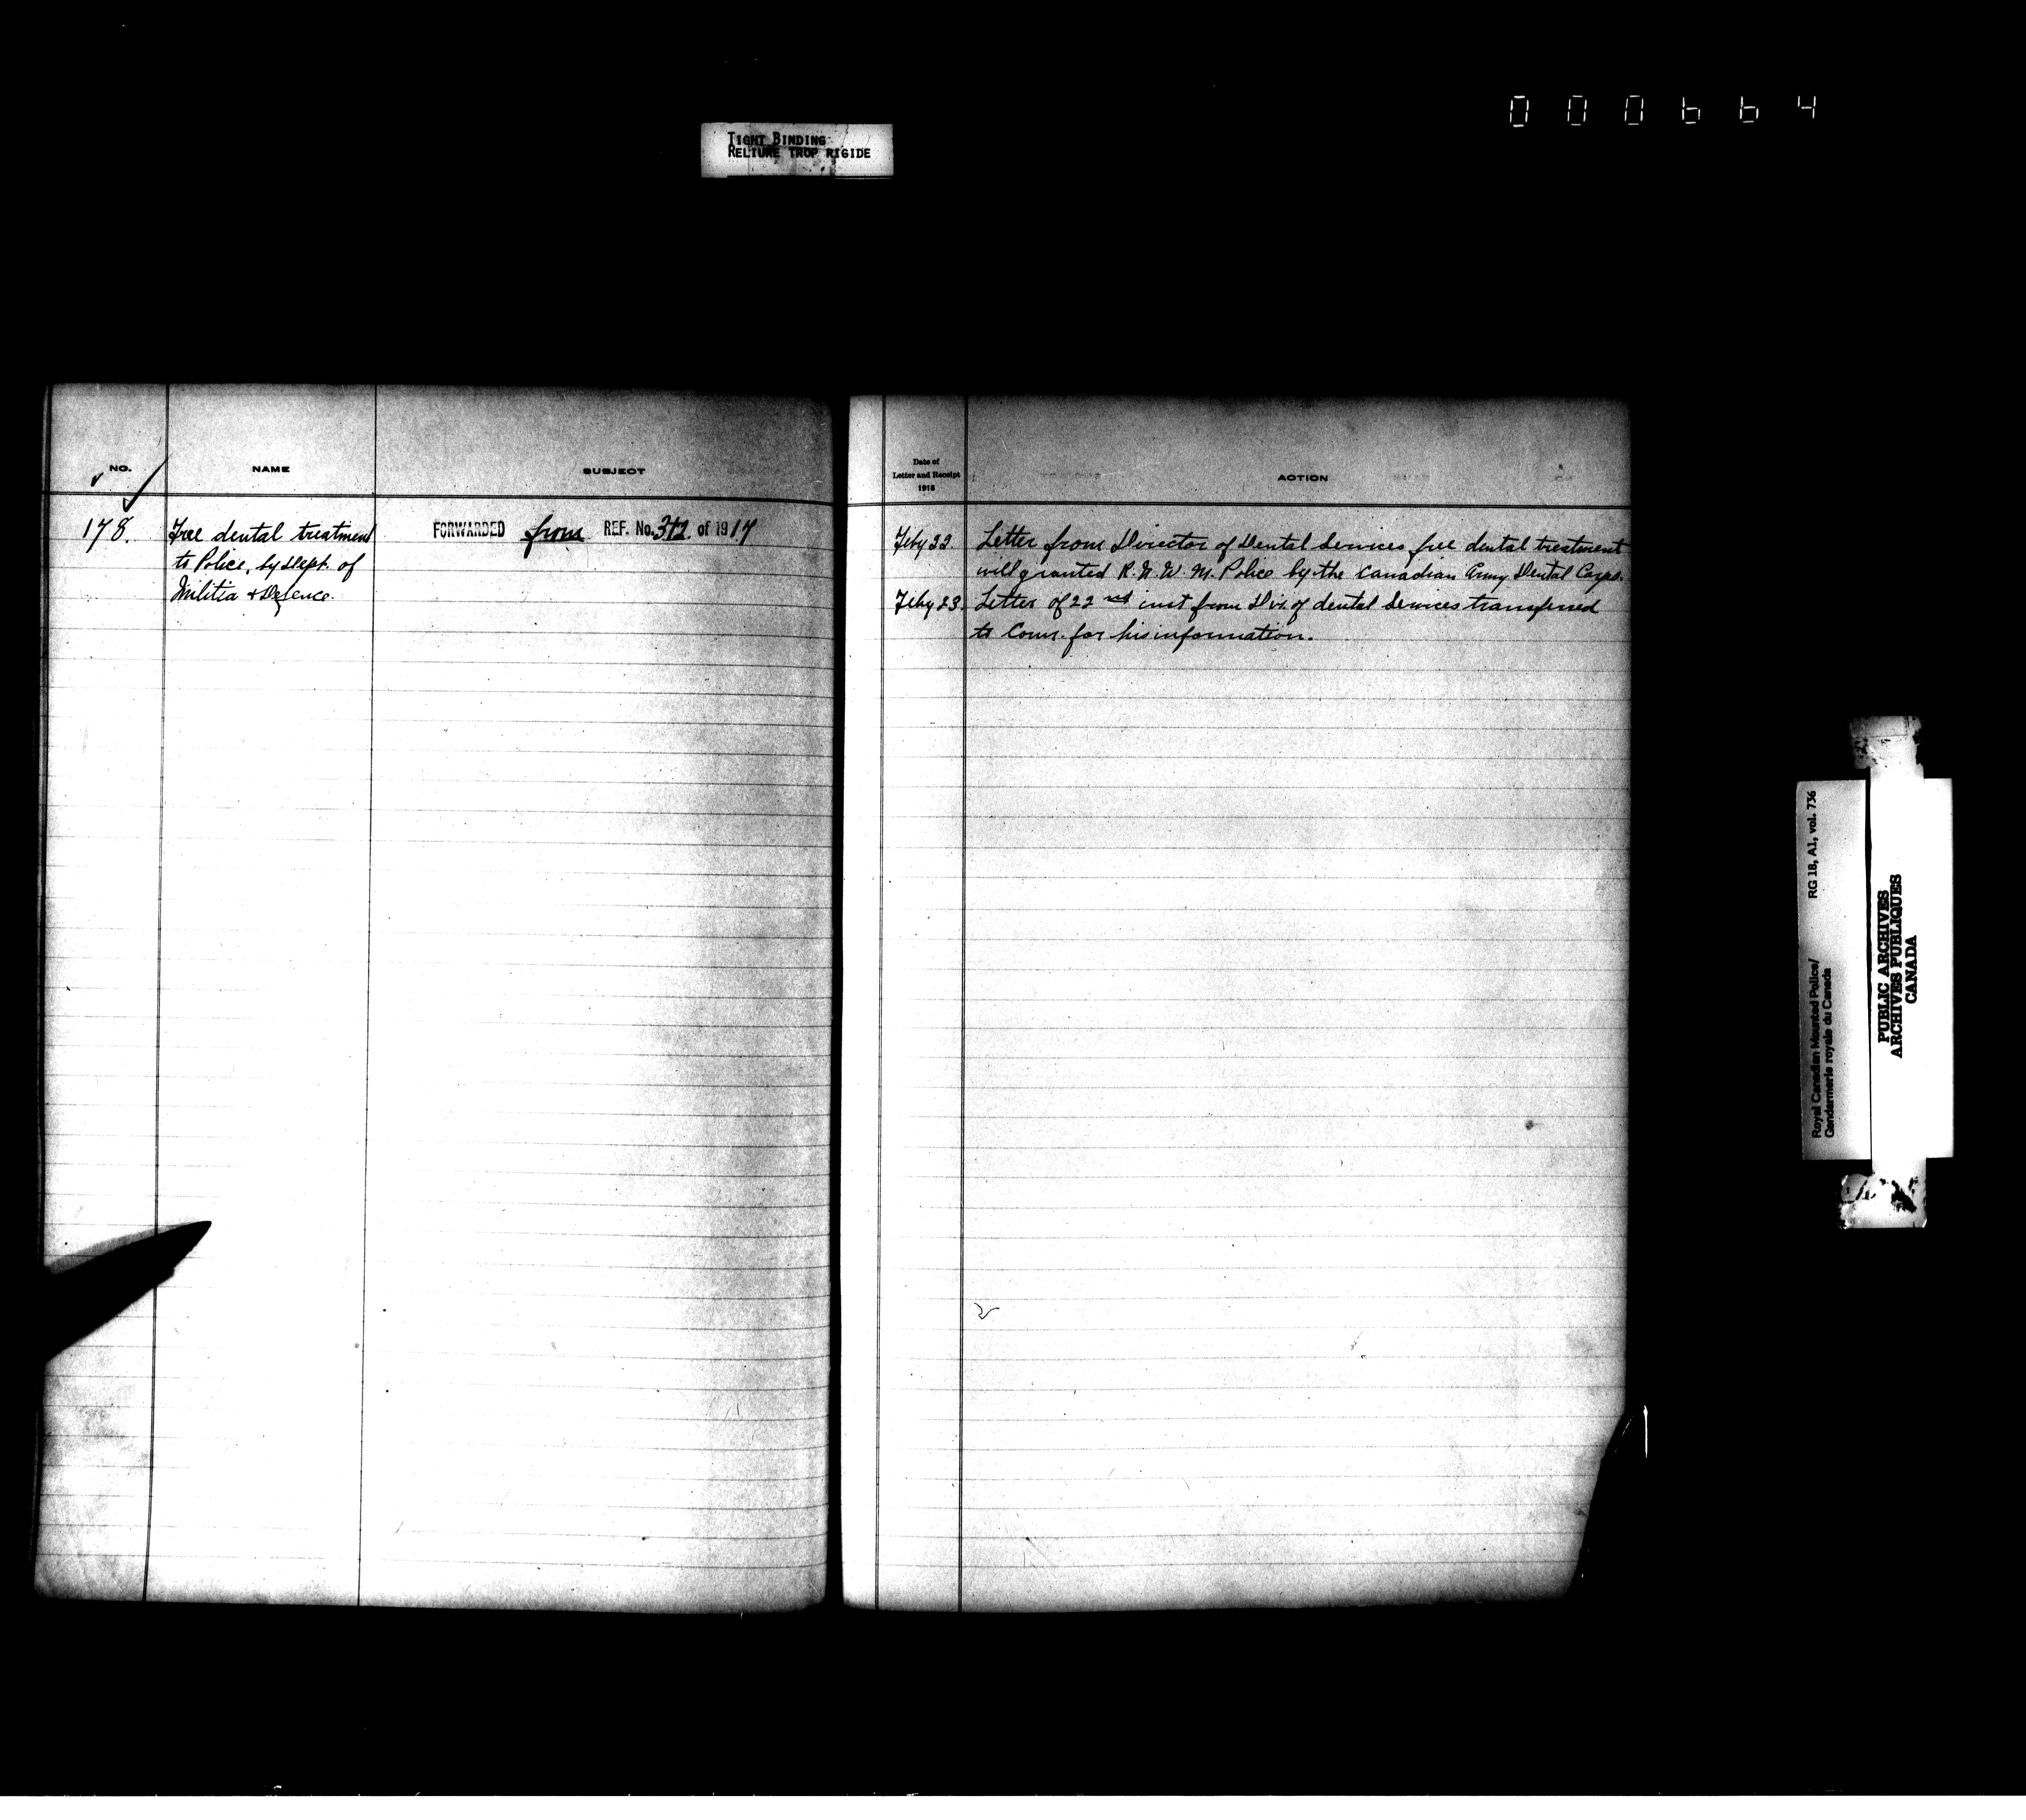 000664
TIGHT BINDING
RELIURE TROP RIGIDE
NO. NAME SUBJECT
178. Free dental treatment FORWARDED from REF. No. 312 of 1917
to Police, by Dept. of
Militia & Defence.
Date of
Letter and Receipt
1918
ACTION
Feby 22 Letter from Director of Dental Services free dental treatment
will granted R.N.W.M. Police by the Canadian Army Dental Corps.
Feby 23. Letter of 22nd inst from Dir. of dental Services transferred
to Comr. for his information.
Royal Canadian Mounted Police/ RG 18, A1, vol. 736
Gendarmerie royale du Canada
PUBLIC ARCHIVES
ARCHIVES PUBLIQUES
CANADA